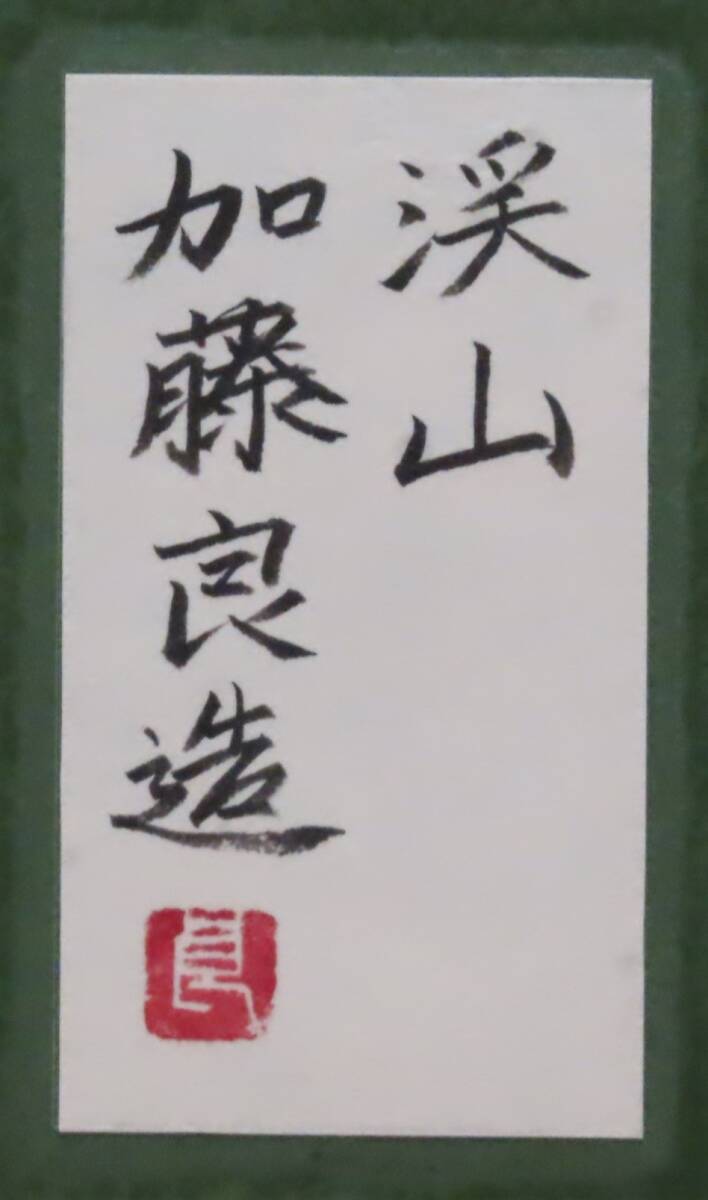 渓山
加藤良造
良